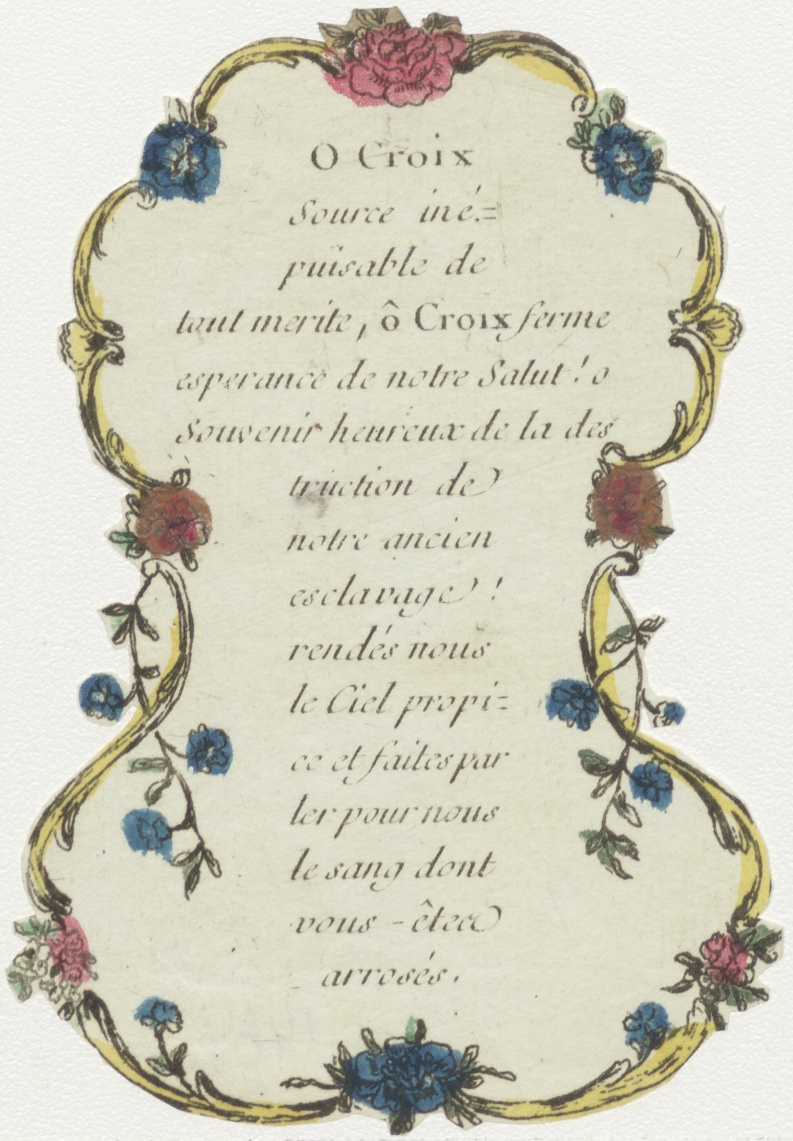 O Croix
Source iné=
puisable de
tout merite, ô Croix ferme
esperance de notre Salut! o
Souvenir heureux de la des
truction de
notre ancien
esclavage!
rendés nous
le Ciel propi=
ce et faites par
ler pour nous
le sang dont
vous - êtes
arrosés.